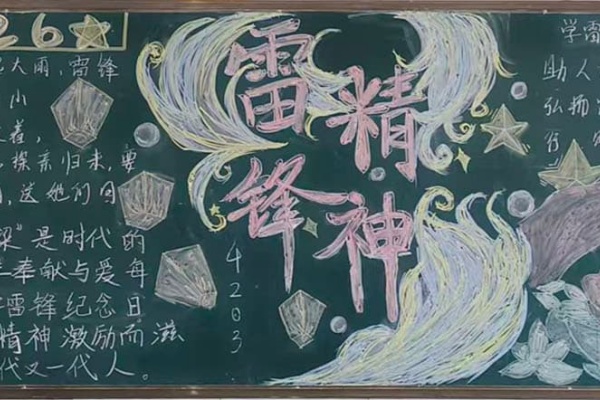 26
大雨，雷锋
小
着，
探亲归来，要
送她们回
”是时代的
奉献与爱每
雷锋纪念日
精神激励而滋
代又一代人。
雷锋
精神
4203
学雷
助人
弘扬
行